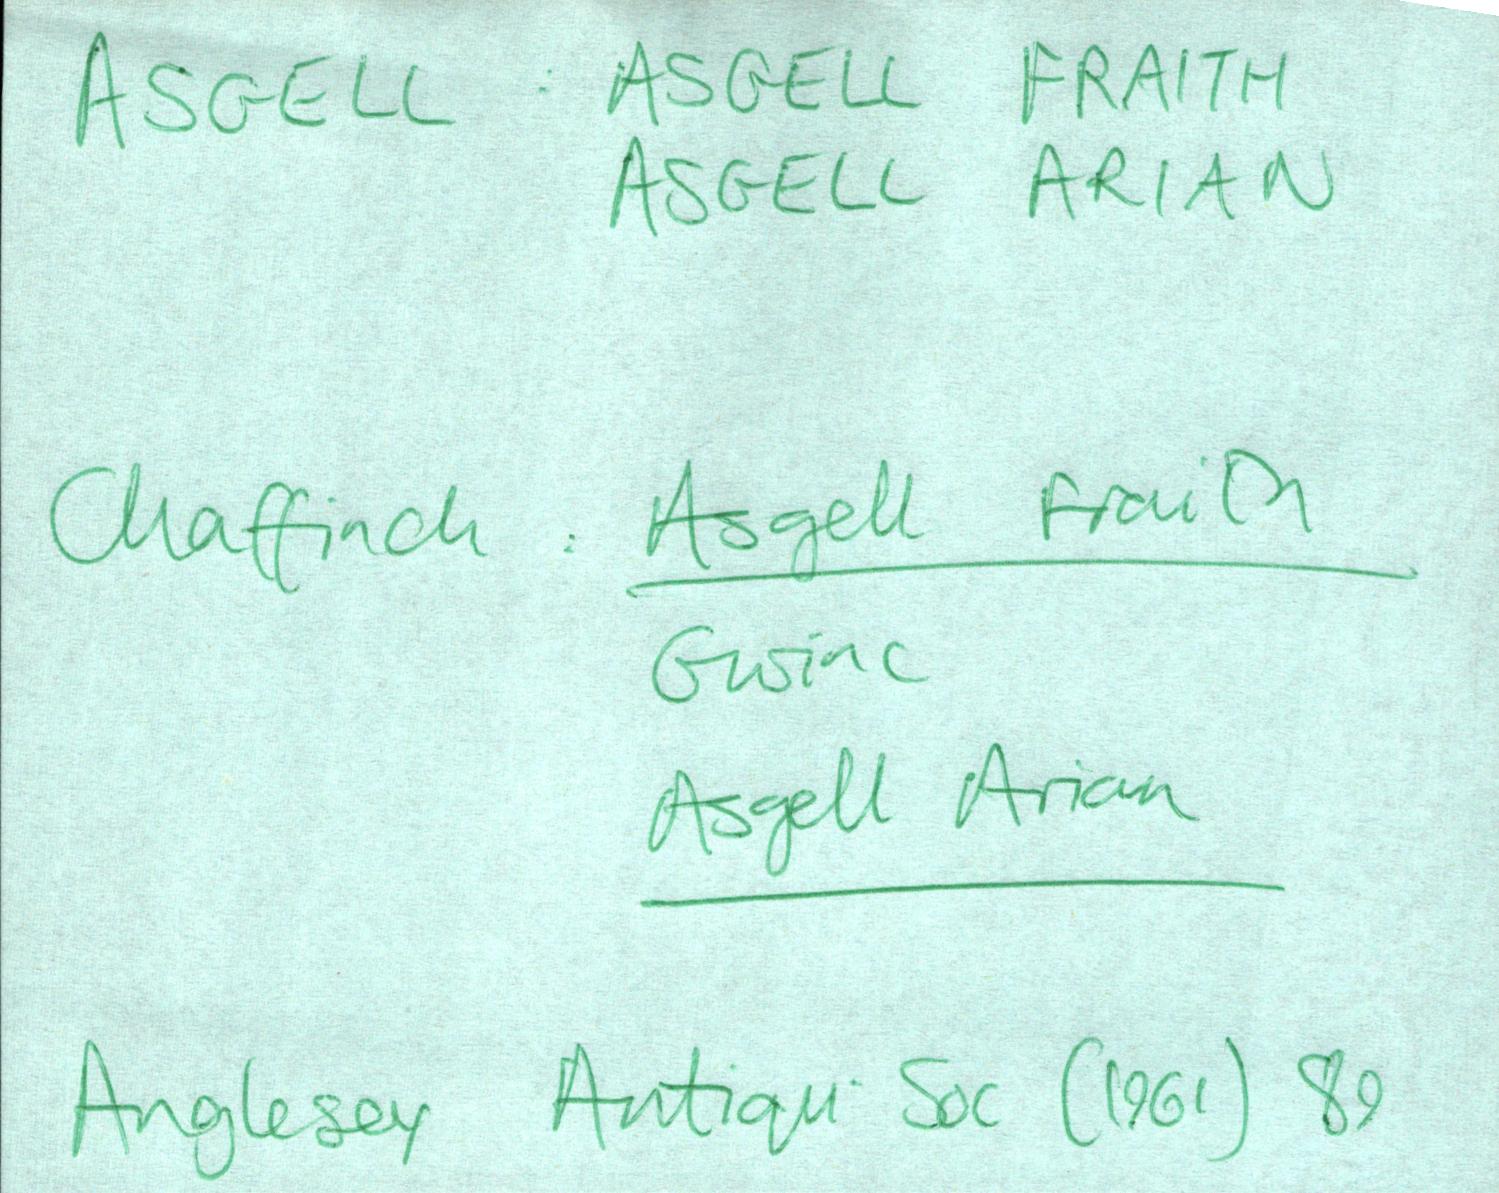 ASGELL : ASGELL FRAITH
ASGELL ARIAN
Chaffinch : Asgell Fraith
Gwinc
Asgell Arian
Anglesey Antiqu. Soc (1961) 89